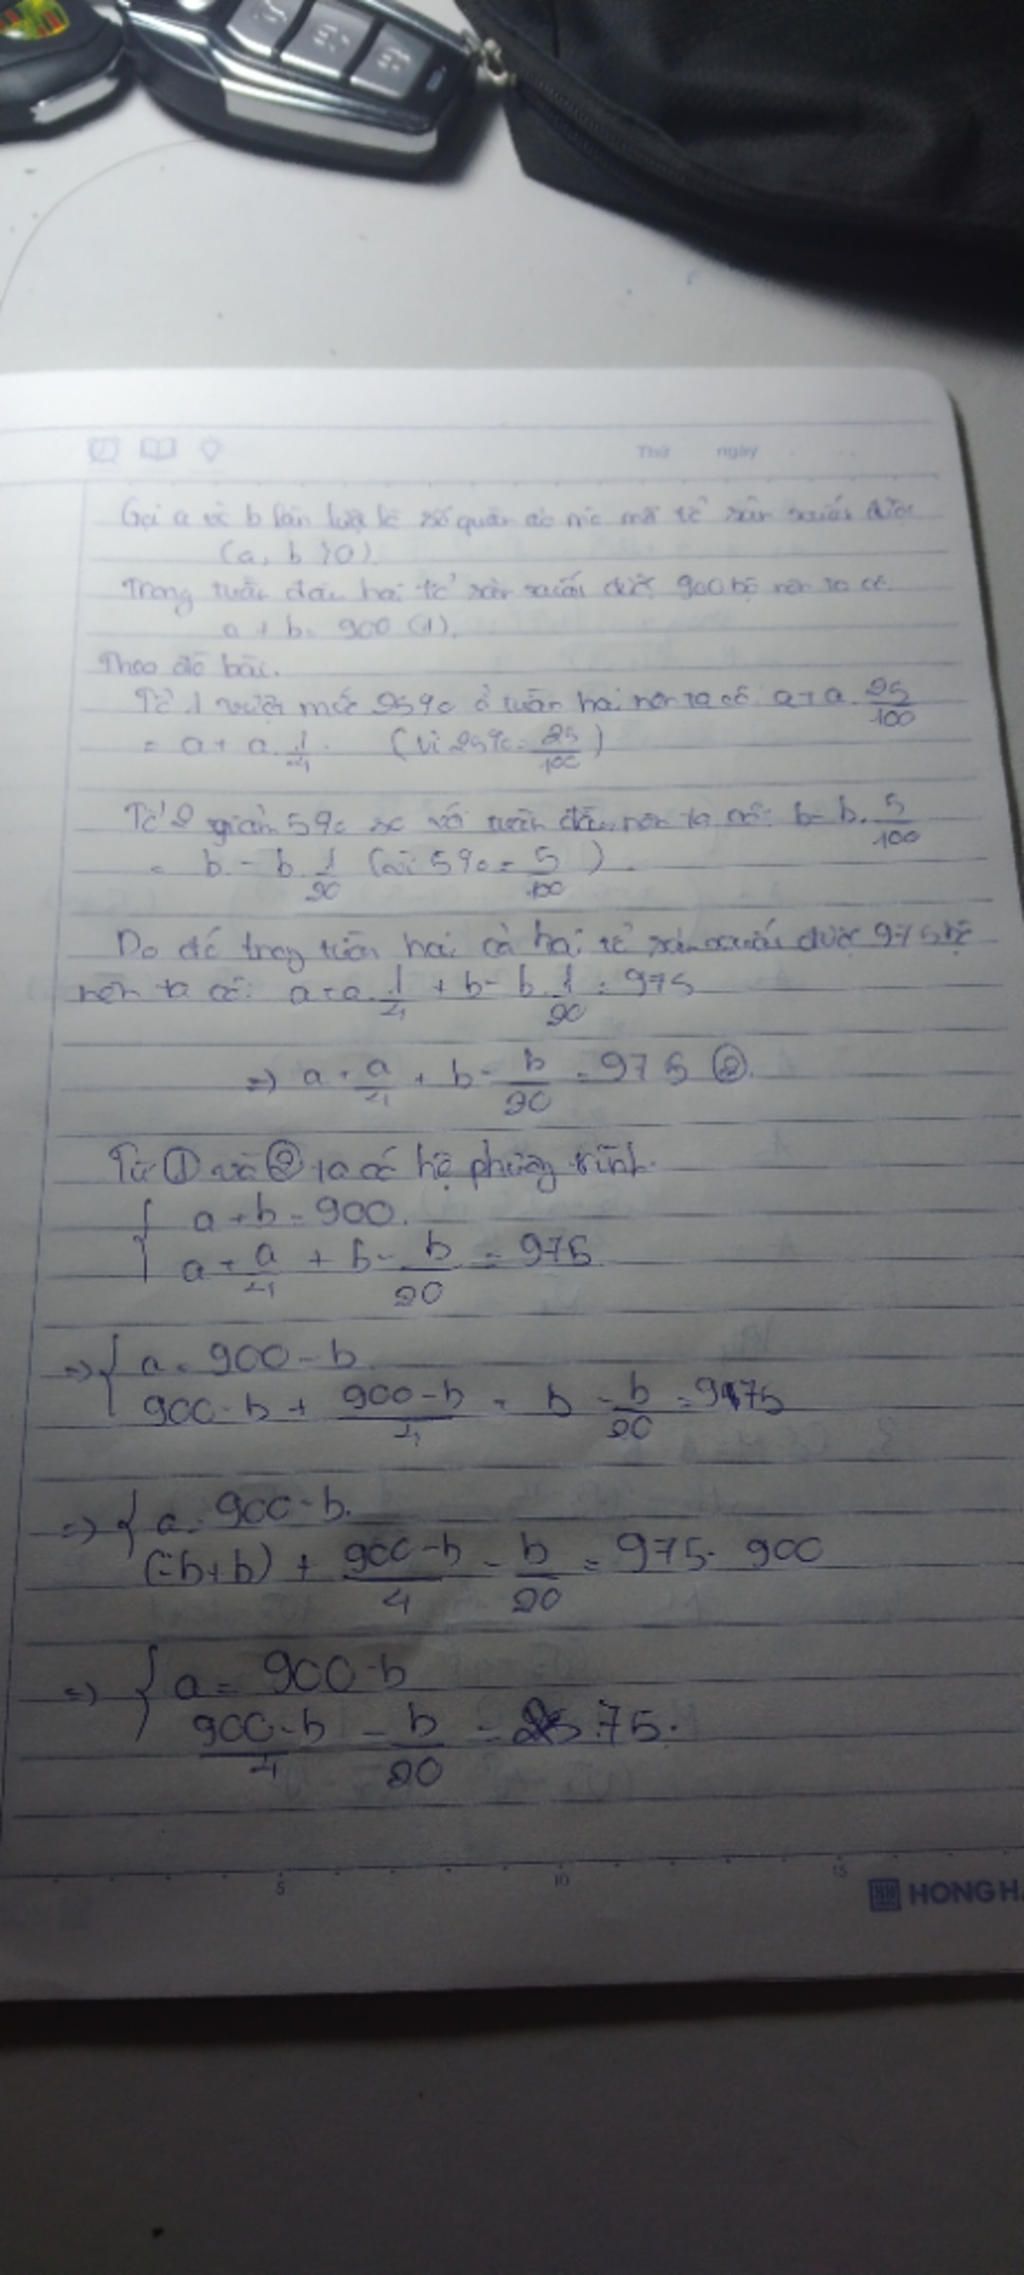 Thứ ngày
Gọi a và b lần lượt là số quần áo mà mỗi tổ sản xuất được
(a, b > 0).
Trong tuần đầu hai tổ sản xuất được 900 bộ nên ta có.
a + b = 900 (1).
Theo đề bài.
Tổ 1 vượt mức 25% ở tuần hai nên ta có: a + a. 25/100
= a + a. 1/4. (vì 25% = 25/100)
Tổ 2 giảm 5% so với tuần đầu nên ta có: b - b. 5/100
= b - b 1/20 (vì 5% = 5/100).
Do đó trong tuần hai cả hai tổ sản xuất được 975 bộ
nên ta có: a + a. 1/4 + b - b. 1/20 = 975
=> a + a/4 + b - b/20 = 975 ②.
Từ ① và ② ta có hệ phương trình.
{ a + b = 900.
a + a/4 + b - b/20 = 975.
=> { a = 900 - b.
900 - b + (900 - b)/4 + b - b/20 = 975
=> { a = 900 - b.
(-b + b) + (900 - b)/4 - b/20 = 975 - 900
=> { a = 900 - b
(900 - b)/4 - b/20 = 75.
5 10 15
HONG H